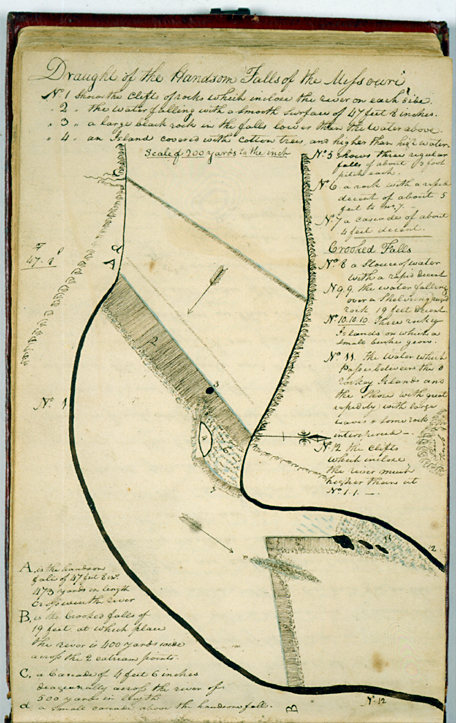 Draught of the Handsom Falls of the Messouri
No 1 Shows the Clifts of rocks which inclose the river on each side.
" 2 - the water falling with a smooth surface of 47 feet 8 inches.
" 3 - a large black rock in the falls lower than the water above
" 4 - an Island covered with Cotton trees, and higher than high water.
Scale of 200 yards to the inch
No 5 shows three regular
falls of about
pitch each.
No 6 a rock with a rapid
decent of about 5
feet
No 7 a cascade of about
4 feet decent.
Crooked Falls
No 8 a of water
with a rapid decent
No 9.9. the water falling
over a Shelving
rock 19 feet decent
No 10.10.10 Three rockey
Islands on which a
small bushes grow.
No 11. the water which
passes between the 3
rockey Islands and
the Shore with great
rapidity with large
waves & some rock
interspersed
No 12 the Clifts
which inclose
the river much
higher than at
No 1 1. —
F
47.8
C
d
A
3
4
5
No 1
11
12
B
No 12
A, is the handsom
fall of 47 feet 8 in.
473 yards in length
across the river
B, is the Crooked falls of
19 feet at which place
the river is 400 yards wide
across the 2 extream points.
C, a Cascade of 4 feet 6 inches
diagonally across the river of
500 yards in length
d a small cascade above the handsom fall.